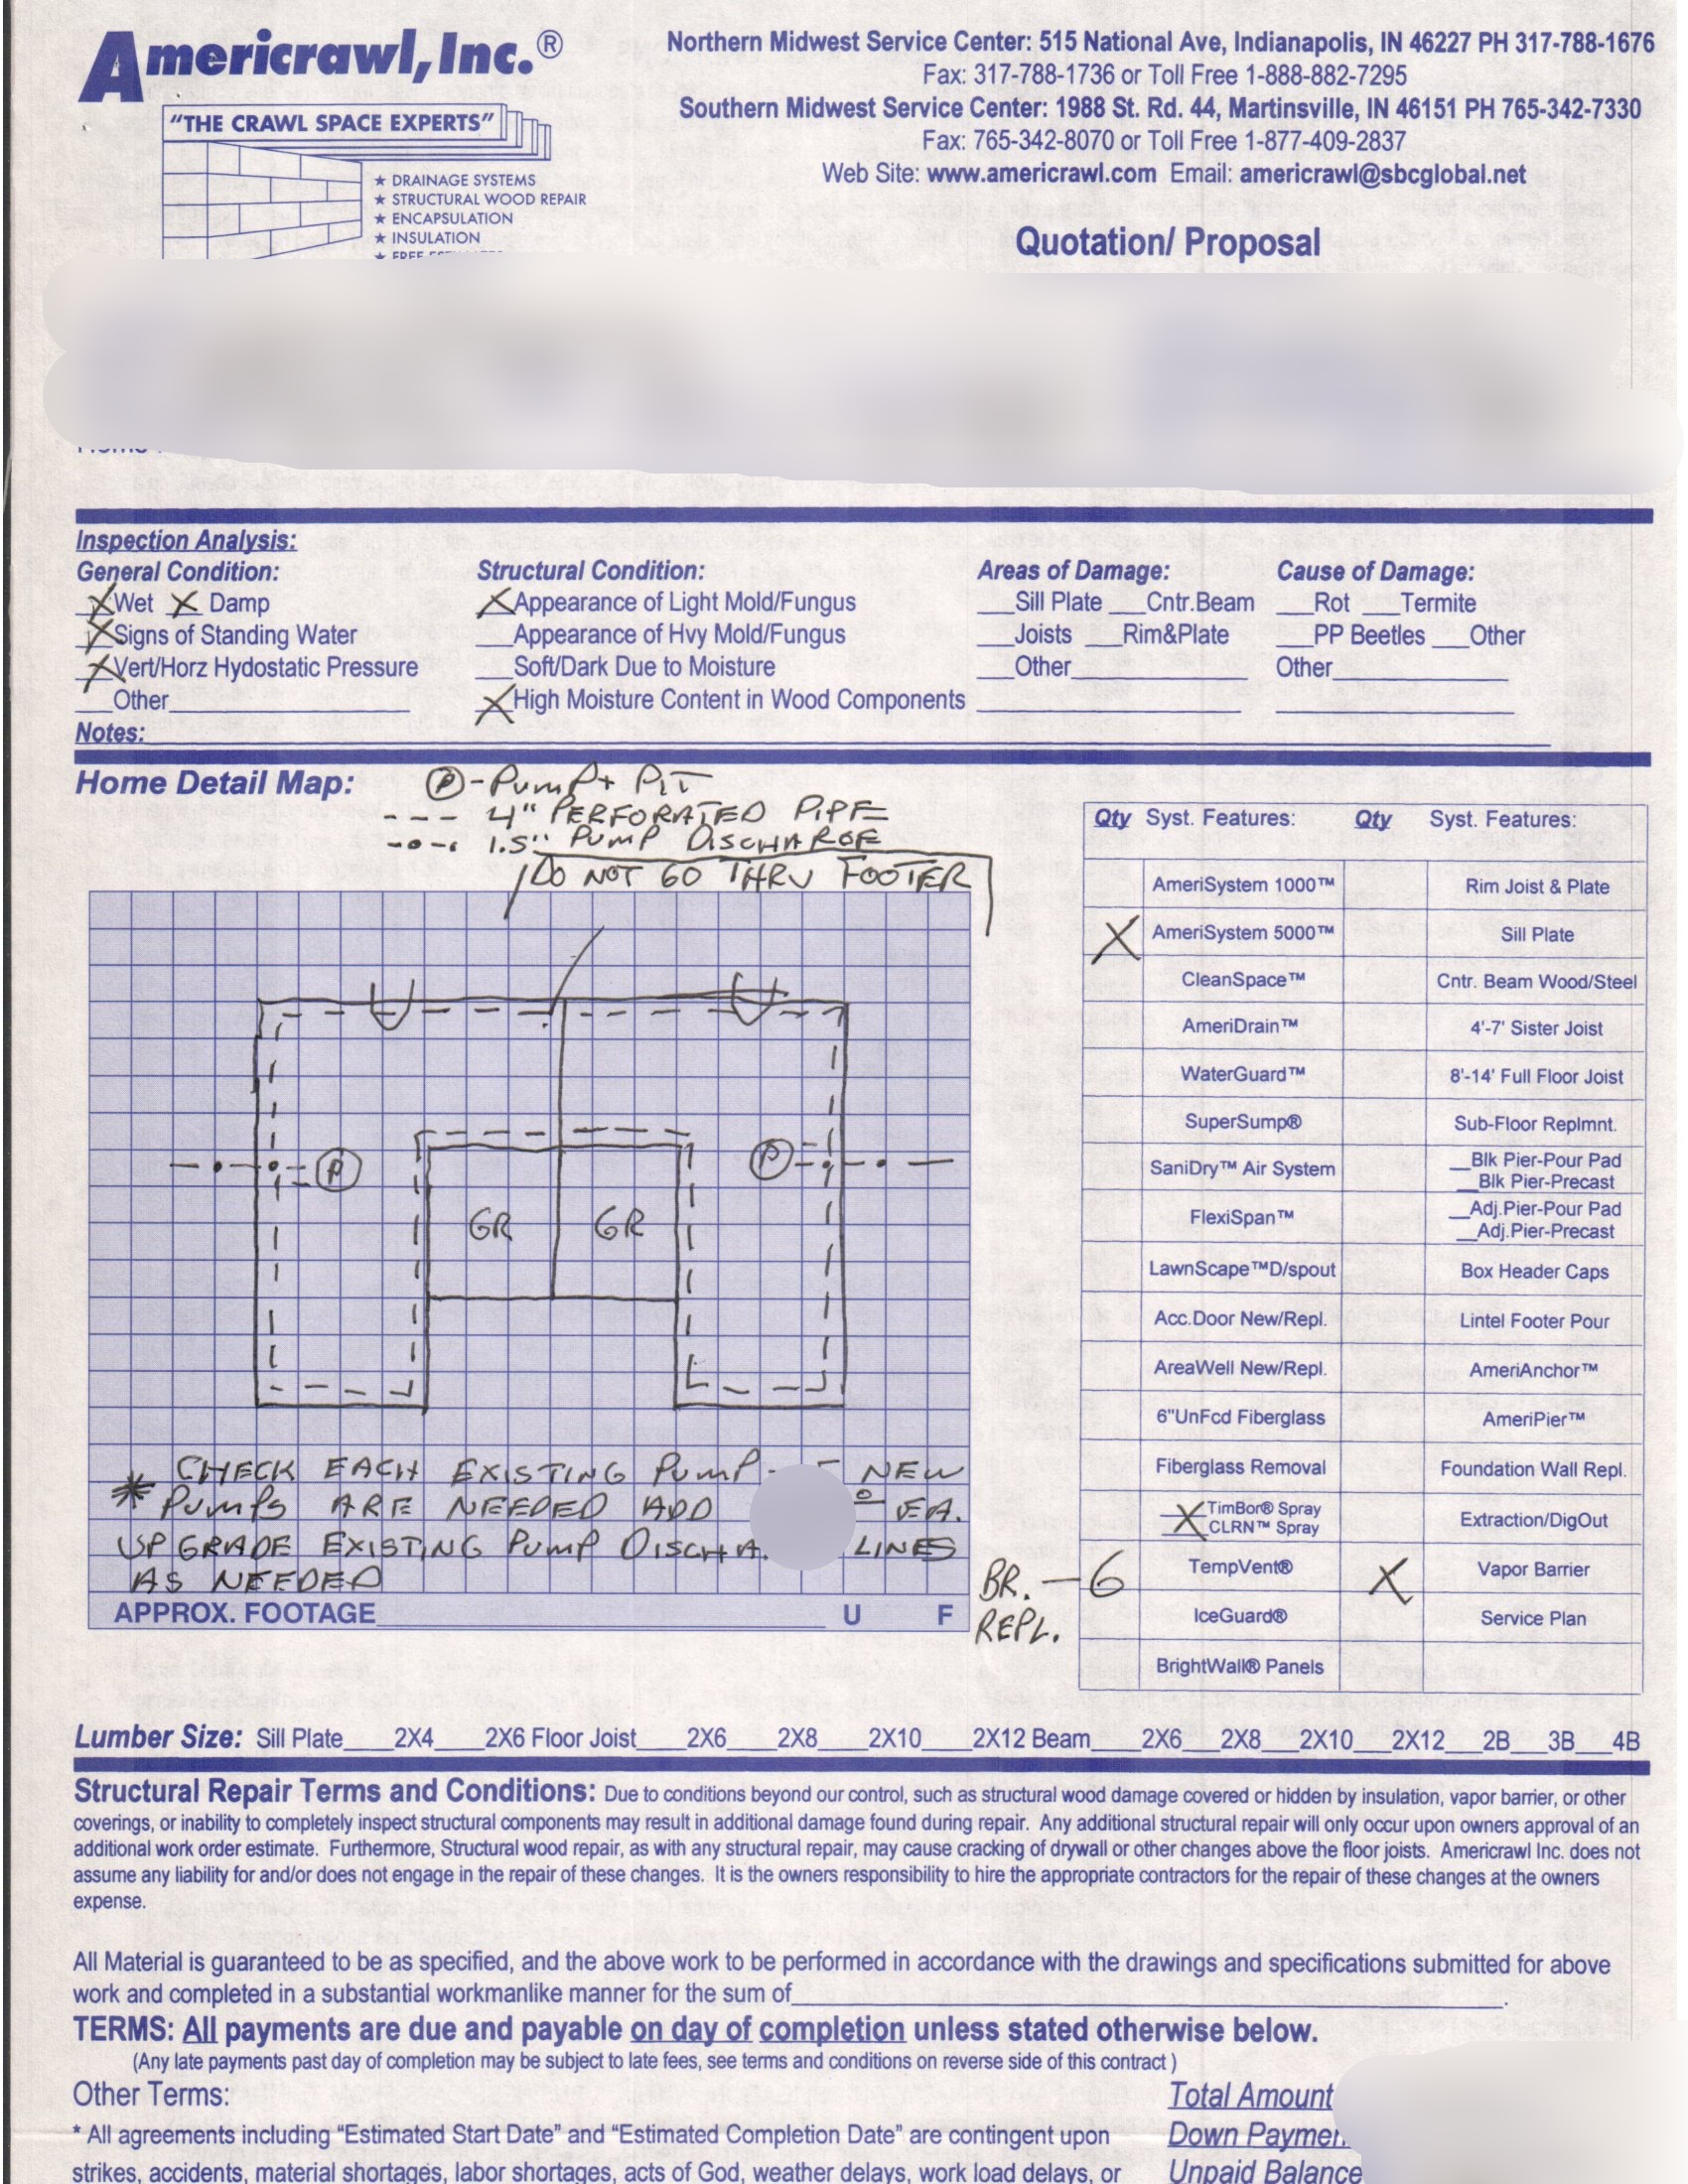 Americrawl, Inc.®
"THE CRAWL SPACE EXPERTS"
★ DRAINAGE SYSTEMS
★ STRUCTURAL WOOD REPAIR
★ ENCAPSULATION
★ INSULATION
Northern Midwest Service Center: 515 National Ave, Indianapolis, IN 46227 PH 317-788-1676
Fax: 317-788-1736 or Toll Free 1-888-882-7295
Southern Midwest Service Center: 1988 St. Rd. 44, Martinsville, IN 46151 PH 765-342-7330
Fax: 765-342-8070 or Toll Free 1-877-409-2837
Web Site: www.americrawl.com Email: americrawl@sbcglobal.net
Quotation/ Proposal
Inspection Analysis:
General Condition: Structural Condition: Areas of Damage: Cause of Damage:
X Wet X Damp X Appearance of Light Mold/Fungus ___Sill Plate ___Cntr.Beam ___Rot ___Termite
X Signs of Standing Water ___Appearance of Hvy Mold/Fungus ___Joists ___Rim&Plate ___PP Beetles ___Other
X Vert/Horz Hydostatic Pressure ___Soft/Dark Due to Moisture ___Other___ Other___
___Other___ X High Moisture Content in Wood Components
Notes:
Home Detail Map:
Ⓟ - PUMP + PIT
--- 4" PERFORATED PIPE
-•-• 1.5" PUMP DISCHARGE
DO NOT GO THRU FOOTER
P
P
GR GR
* CHECK EACH EXISTING PUMP - NEW
PUMPS ARE NEEDED ADD EA.
UPGRADE EXISTING PUMP LINES
AS NEEDED
APPROX. FOOTAGE___ U F
Qty Syst. Features: Qty Syst. Features:
AmeriSystem 1000™ Rim Joist & Plate
X AmeriSystem 5000™ Sill Plate
CleanSpace™ Cntr. Beam Wood/Steel
AmeriDrain™ 4'-7' Sister Joist
WaterGuard™ 8'-14' Full Floor Joist
SuperSump® Sub-Floor Replmnt.
SaniDry™ Air System __Blk Pier-Pour Pad
__Blk Pier-Precast
FlexiSpan™ __Adj.Pier-Pour Pad
__Adj.Pier-Precast
LawnScape™D/spout Box Header Caps
Acc.Door New/Repl. Lintel Footer Pour
AreaWell New/Repl. AmeriAnchor™
6"UnFcd Fiberglass AmeriPier™
Fiberglass Removal Foundation Wall Repl.
X TimBor® Spray Extraction/DigOut
CLRN™ Spray
BR. - 6 TempVent® X Vapor Barrier
REPL. IceGuard® Service Plan
BrightWall® Panels
Lumber Size: Sill Plate____2X4____2X6 Floor Joist____2X6____2X8____2X10____2X12 Beam____2X6___2X8___2X10___2X12___2B___3B___4B
Structural Repair Terms and Conditions: Due to conditions beyond our control, such as structural wood damage covered or hidden by insulation, vapor barrier, or other
coverings, or inability to completely inspect structural components may result in additional damage found during repair. Any additional structural repair will only occur upon owners approval of an
additional work order estimate. Furthermore, Structural wood repair, as with any structural repair, may cause cracking of drywall or other changes above the floor joists. Americrawl Inc. does not
assume any liability for and/or does not engage in the repair of these changes. It is the owners responsibility to hire the appropriate contractors for the repair of these changes at the owners
expense.
All Material is guaranteed to be as specified, and the above work to be performed in accordance with the drawings and specifications submitted for above
work and completed in a substantial workmanlike manner for the sum of___.
TERMS: All payments are due and payable on day of completion unless stated otherwise below.
(Any late payments past day of completion may be subject to late fees, see terms and conditions on reverse side of this contract )
Other Terms:
Total Amount
* All agreements including “Estimated Start Date” and “Estimated Completion Date” are contingent upon
Down
strikes, accidents, material shortages, labor shortages, acts of God, weather delays, work load delays, or
Unpaid Balance